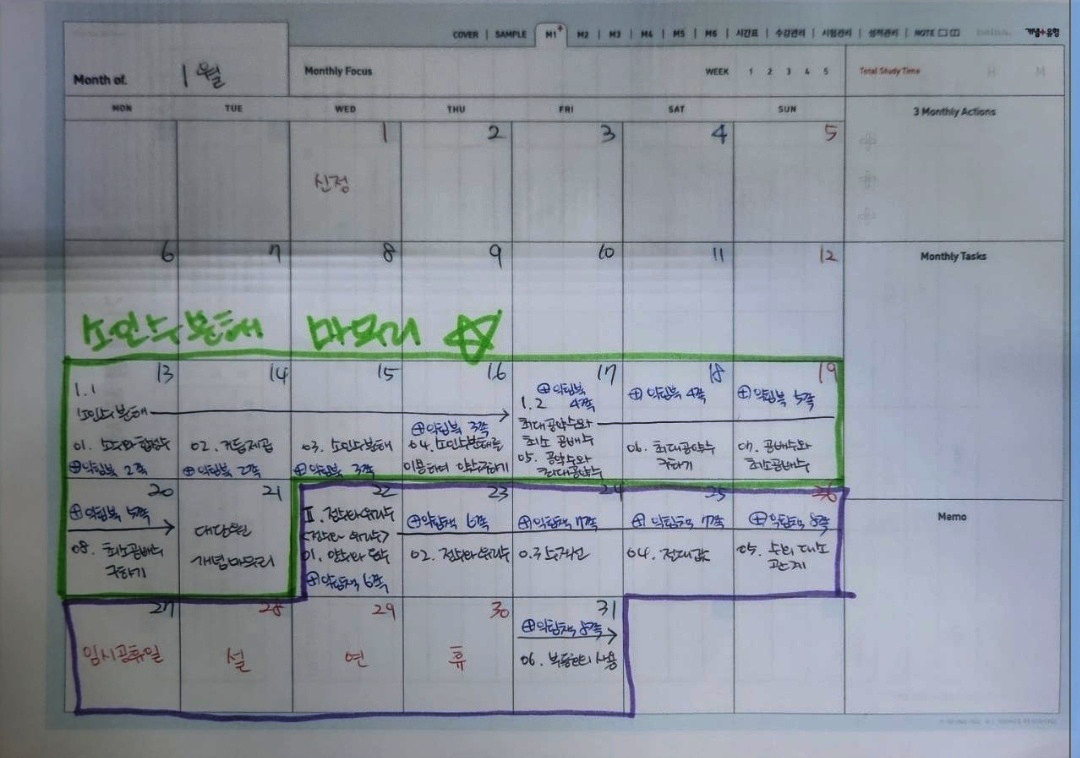 COVER | SAMPLE M1+ M2 | M3 | M4 | M5 | M6 | 시간표 | 수강관리 | 시험관리 | 성적관리 | NOTE
개념+유형
Month of. 1월
Monthly Focus
WEEK 1 2 3 4 5
Total Study Time
MON TUE WED THU FRI SAT SUN
3 Monthly Actions
1 2 3 4 5
신정
6 7 8 9 10 11 12
Monthly Tasks
소인수분해 마무리
13 14 15 16 17 18 19
1.1
소인수분해
01. 소수와 합성수
⊕약탐북 2쪽
02. 거듭제곱
⊕약탐북 2쪽
03. 소인수분해
⊕약탐북 3쪽
⊕약탐북 3쪽
04. 소인수분해를
이용하여 약수구하기
⊕약탐북
1.2 4쪽
최대공약수와
최소 공배수
05. 공약수와
최대공약수
⊕약탐북 4쪽
06. 최대공약수
구하기
⊕약탐북 5쪽
07. 공배수와
최소공배수
20 21 22 23 24 25 26
⊕약탐북 5쪽
08. 최소공배수
구하기
대단원
개념마무리
II. 정수와 유리수
<정수와 유리수>
01. 양수와 음수
⊕약탐책 6쪽
⊕약탐책 6쪽
02. 정수와 유리수
⊕약탐책 7쪽
0.3 수직선
⊕약탐책 7쪽
04. 절대값
⊕약탐책 8쪽
05. 수의 대소
관계
Memo
27 28 29 30 31
임시공휴일
설
연
휴
⊕약탐책 8쪽
06. 부등호의 사용